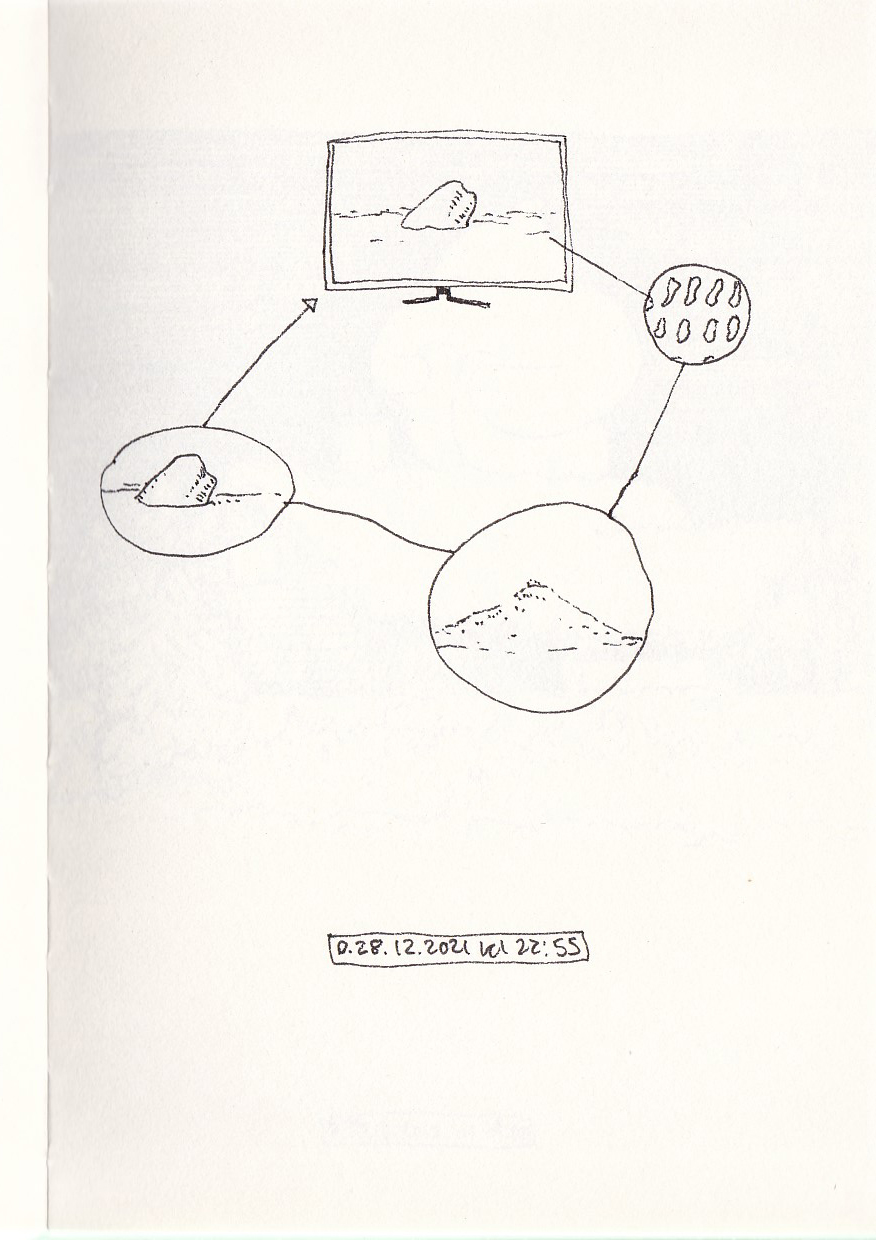 D.28.12.2021 kl 22:55